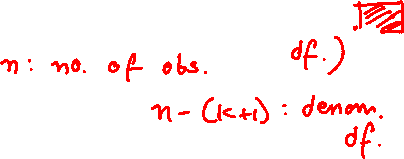 df.)
n: no. of obs.
n-(k+1): denom.
df.